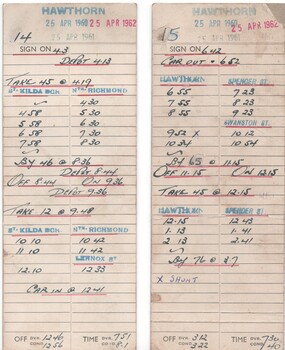 HAWTHORN
25 APR 1960 25 APR 1962
14 24 APR 1961
SIGN ON 4.3
DEPOT 4.13
TAKE 45 @ 4.19
ST. KILDA BCH. NTH. RICHMOND
~ 4 30
4 58 5 30
5 58 6 30
6 58 7 30
7 58 8 30
~
BY 46 @ 8.36
DEPOT 8.44
OFF 8.44 ON 9.36
DEPOT 9.36
TAKE 12 @ 9.48
ST. KILDA BCH. NTH. RICHMOND
10 10 10 42
11 10 11 42
LENNOX ST
12.10 12.33
CAR IN @ 12 41
OFF DVR. 12 46 TIME DVR. 7 51
COND. 12 56 COND. 8.1
HAWTHORN
25 APR 1960 25 APR 1962
15 24 APR 1961
SIGN ON 6.42
CAR OUT @ 6.52
HAWTHORN SPENCER ST.
6 55 7 23
7 55 8 23
8 55 9 23
SWANSTON ST.
9 52 X 10 12
10 34 10 54
~
BY 65 @ 11.15
OFF 11.15 ON 12.15
TAKE 45 @ 12.15
HAWTHORN SPENCER ST.
12.15 12 43
1 13 1 41
2 13 2 41
~
BY 76 @ 3.7
X SHUNT
OFF DVR. 3 12 TIME DVR. 7 30
COND. 3 22 COND. 7 40